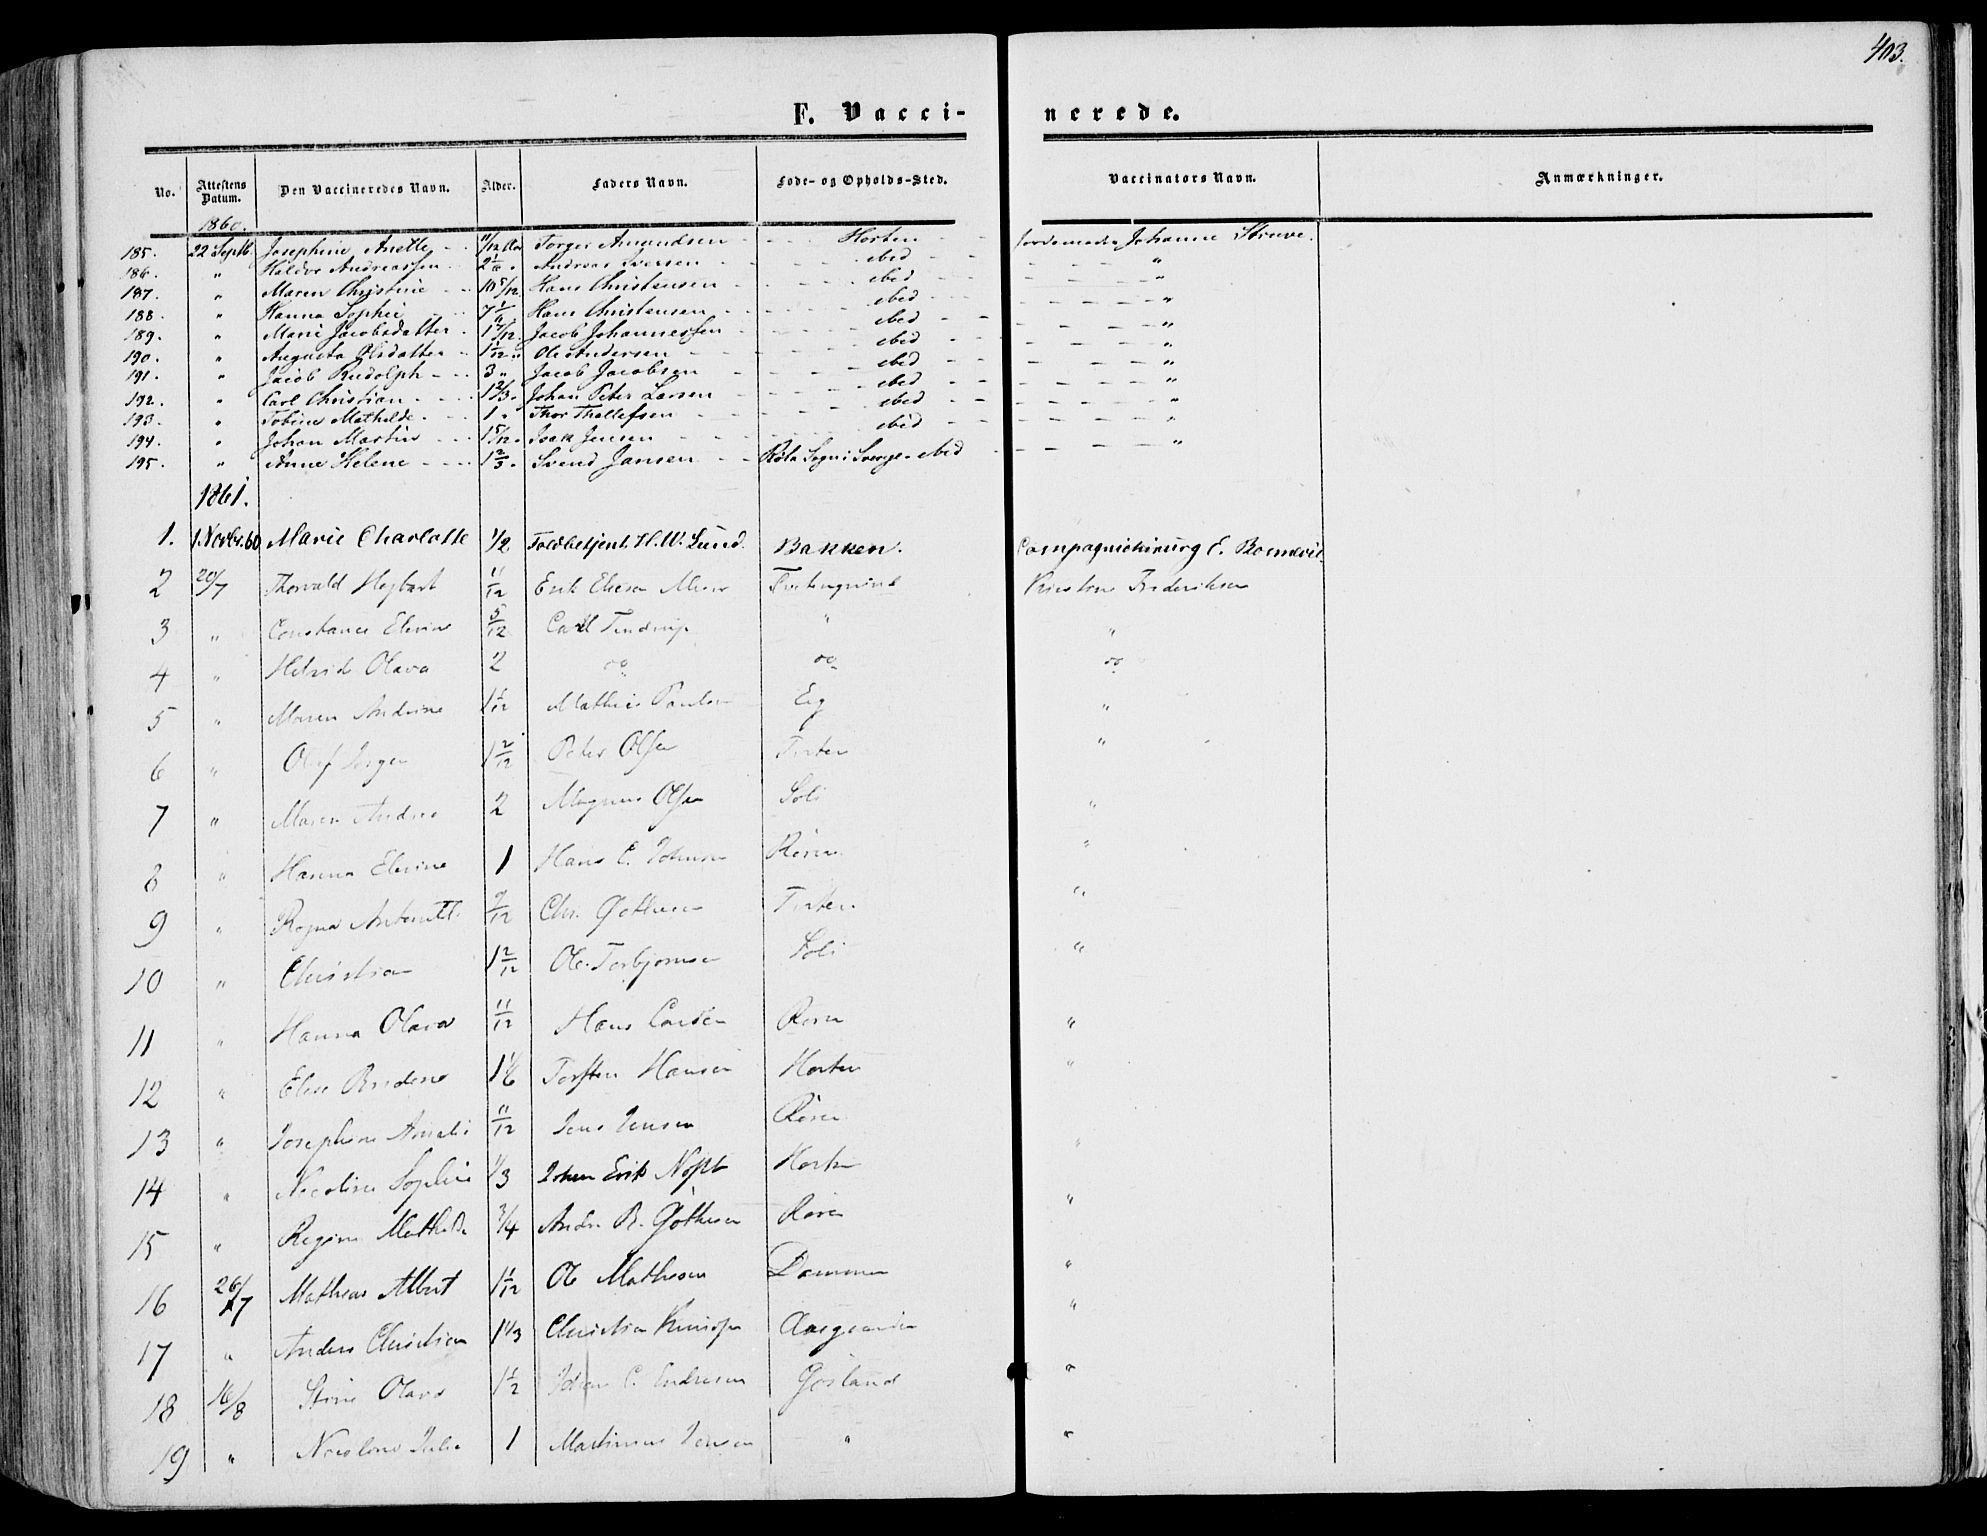 403.
F. Vaccinerede.
No. Attestens Datum. Den Vaccineredes Navn. Alder. Faders Navn. Føde- og Opholds-Sted. Vaccinators Navn. Anmærkninger.
1860.
185. 22 Septb. Josephine Anette 11/12 Torger Amundsen Horten Jordemoder Johanne Struve.
186. " Andreassen 2 1/6 Andreas Iversen ibid "
187. " Maren Christine 10 5/12 Hans Christensen ibid "
188. " Hanna Sophie 7 Hans Christensen ibid "
189. " Marie Jacobsdatter 1 7/12 Jacob Johannessen ibid "
190. " Augusta Olsdatter 1 1/12 " Ole Andersen ibid "
191. " Jacob Rudolph 3 " Jacob Jacobsen ibid "
192. " Carl Christian 1 2/3 Johan Peter Larsen ibid "
193. " Tobine Mathilde 1 " Thor Thollefsen ibid "
194. " Johan Martin 1 5/12 Isak Jensen ibid "
195. " Anne Helene 1 2/3 Svend Jansen Sogn i Sverge ibid "
1861.
1. 1 Novbr. 60 Marie Charlotte 1/2 Toldbetjent H. W. Lund. Bakken. Compagnichirurg E.
2 20/7 Thorvald 11/12 Erik Frederiksen
3 " Constance Elevine 5/12 Carl " "
4 " Olava 2 do do do
5 " Maren Andrine 1 1/12 Mathias Paulsen Eig "
6 " Olaf 1 2/12 Peter Olsen "
7 " Maren Andrea 2 Magnus Olsen Soli "
8 " Hanna Elevine 1 Hans C. Johnsen Røren "
9 " Ragna 9/12 Chr. Gøthesen "
10 " Christian 1 2/12 Ole Torbjornsen Soli "
11 " Hanna Olava 11/12 Hans Røren "
12 " Elise 1 1/6 Torsten Hansen Horten "
13 " Josephine Amalie 11/12 Jens Jensen Røren "
14 " Nicoline Sophie 1/3 Johan Erik Horten "
15 " Regine Mathilde 3/4 Andr. B. Gøthesen Røren "
16 26/7 Mathias Albert 1 1/12 Ole Mathesen Dammen "
17 " Anders Christian 1 1/3 Christian Aasgaarden "
18 16/8 Stine Olava 1 1/2 Johan C. Endresen "
19 " Nicoline Julie 1 Martinius Jensen " "